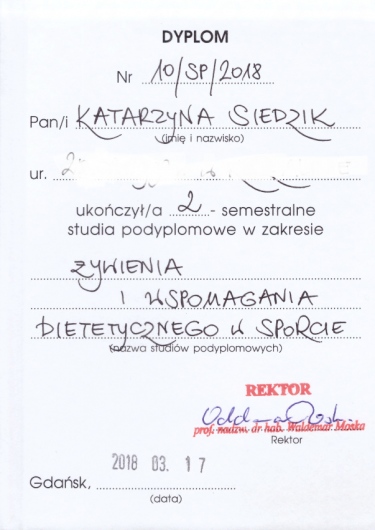 DYPLOM
Nr 10/SP/2018
Pan/i KATARZYNA SIEDZIK
(imię i nazwisko)
ur.
ukończył/a 2 - semestralne
studia podyplomowe w zakresie
ŻYWIENIA
I WSPOMAGANIA
DIETETYCZNEGO W SPORCIE
(nazwa studiów podyplomowych)
REKTOR
prof. nadzw. dr hab. Waldemar Moska
Rektor
2018 03. 17
Gdańsk,
(data)